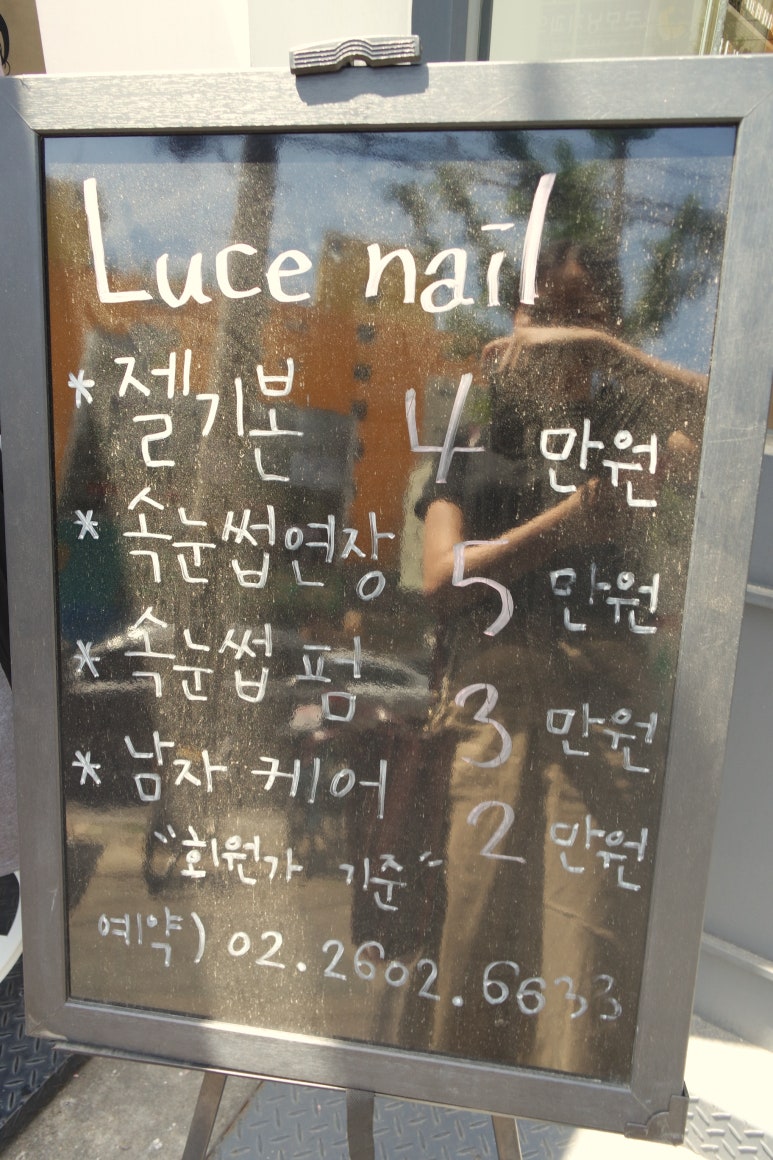 Luce nail
* 젤기본 4 만원
* 속눈썹연장 5 만원
* 속눈썹 펌 3 만원
* 남자 케어 2 만원
"회원가 기준"
예약) 02.2602.6633